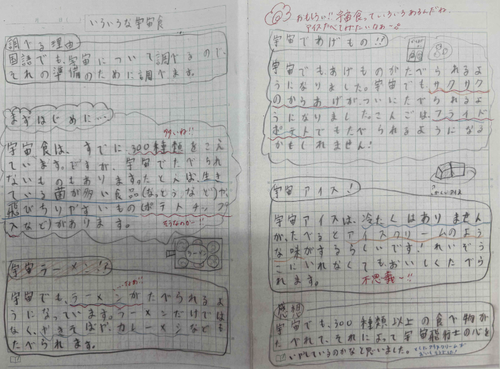 いろいろな宇宙食
調べる理由
国語でも、宇宙について調べるので、
それの準備のために調べます。
まずはじめに…
すごいね!!
宇宙食は、すでに300種類をこえ
ています。ですが、宇宙でたべられ
ないものもあります。たとえば生き
ている菌が多い食品(なっとうなど)や、
飛びちりやすいもの(ポテトチップ
スなど)があります。
そうなんだー!!
宇宙ラーメン!!
宇宙でも、ラーメンがたべられるよ
うになっています。ラーメンだけでは
なく、やきそばや、カレーメンなども
たべられます。
おもしろい!! 宇宙食っていろいろあるんだね。
アイスたべてみたいなぁー
宇宙であげもの!?
宇宙でもあげものがたべられるよ
うになりました。宇宙でもサクサク
のからあげがついにたべられるよ
うになりました。こんごはフライド
ポテトでもたべられるようになる
かもしれません!
宇宙アイス!
宇宙アイスは、冷たくはありません
が、たべるとアイスクリームのよう
な味がするらしいです!れいぞう
こにいれなくてもおいしくたべら
れます。
不思議ー!!
感想
宇宙でも、300種類以上の食べ物が
たべれて、それによって宇宙飛行士の心を
いやしているのかなと思いました。